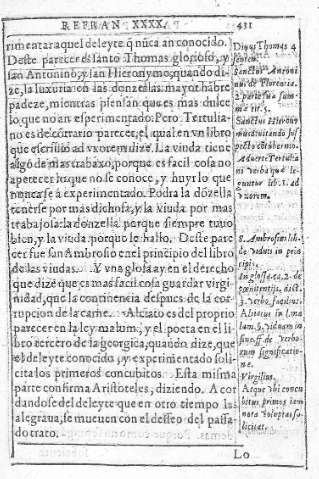 REFRAN XXXX. 431
rimentara aquel deleyte q̃ nũca an conocido.
Deste parecer es santo Thomas glorioso, y
san Antonino, y san Hieronymo, quando di-
ze, la luxuria en las donzellas mayor hãbre
padeze, mientras piensan que es mas dulce
lo que no an esperimentado. Pero Tertulia-
no es de cõtrario parecer, el qual en vn libro
que escriuio ad vxorem dize. La viuda tiene
algo de mas trabaxo, porque es facil cosa no
apetecer lo que no se conoce, y huyr lo que
nunca se a experimentado. Podra la dõzella
tenerse por mas dichosa, y la viuda por mas
trabajosa: la donzella porque siempre tuuo
bien, y la viuda porque le hallo. Deste pare
cer fue san Ambrosio en el principio del libro
de las viudas. Y vna glosa ay en el derecho
que dize que es mas facil cosa guardar virgi
nidad, que la continencia despues de la cor-
rupcion de la carne. Alciato es del proprio
parecer en la ley malum, y el poeta en el li
bro tercero de la georgica, quando dize, que
el deleyte conocido y experimentado soli-
cita los primeros concubitos. Esta misma
parte confirma Aristoteles, diziendo. A cor
dandose del deleyte que en otro tiempo las
alegraua, se mueuen con el desseo del passa-
do trato.
Lo
Diuus Thomas 4
senten.
Sanctus Antoni
nus de Florencia.
2. parte suæ sum-
ma tit. 5.
Sanctus Hierony
mus
pecto
Aduerte Tertulia
ni verba quæ le-
untur lib. 1. ad
vxorem.
S. Ambrosius lib.
de viduis in prin
cipi.
In glossa c. 2. de
pœnitentijs, dist.
3. verbo
Alciatus in l. ma
lum.
in suo ff. de verbo
rum significatio-
ne.
Virgilius.
Atque vbi concu
bitus primos iam
nota voluptas so-
licitat.